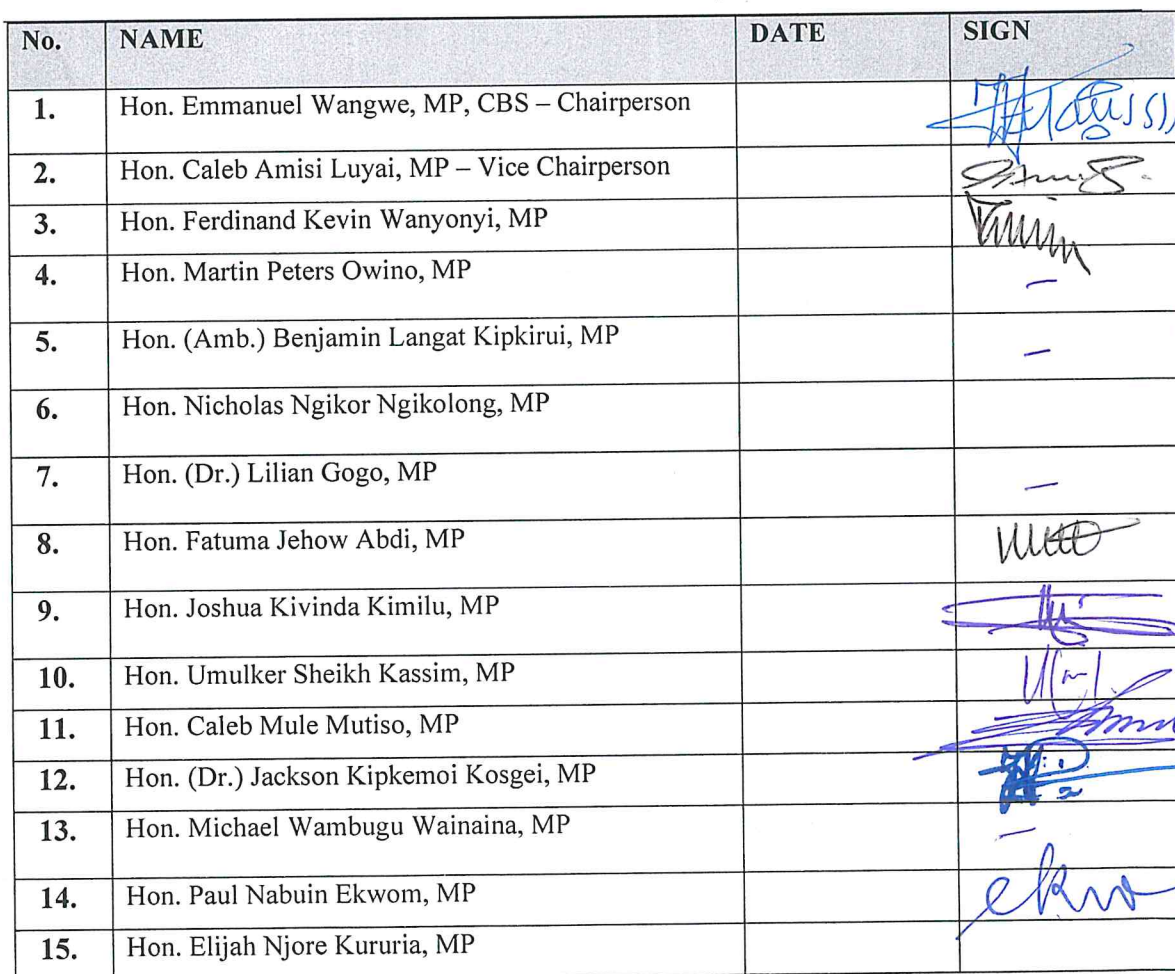 No. NAME DATE SIGN
1. Hon. Emmanuel Wangwe, MP, CBS – Chairperson
2. Hon. Caleb Amisi Luyai, MP – Vice Chairperson
3. Hon. Ferdinand Kevin Wanyonyi, MP
4. Hon. Martin Peters Owino, MP –
5. Hon. (Amb.) Benjamin Langat Kipkirui, MP –
6. Hon. Nicholas Ngikor Ngikolong, MP
7. Hon. (Dr.) Lilian Gogo, MP –
8. Hon. Fatuma Jehow Abdi, MP
9. Hon. Joshua Kivinda Kimilu, MP
10. Hon. Umulker Sheikh Kassim, MP
11. Hon. Caleb Mule Mutiso, MP
12. Hon. (Dr.) Jackson Kipkemoi Kosgei, MP
13. Hon. Michael Wambugu Wainaina, MP –
14. Hon. Paul Nabuin Ekwom, MP
15. Hon. Elijah Njore Kururia, MP